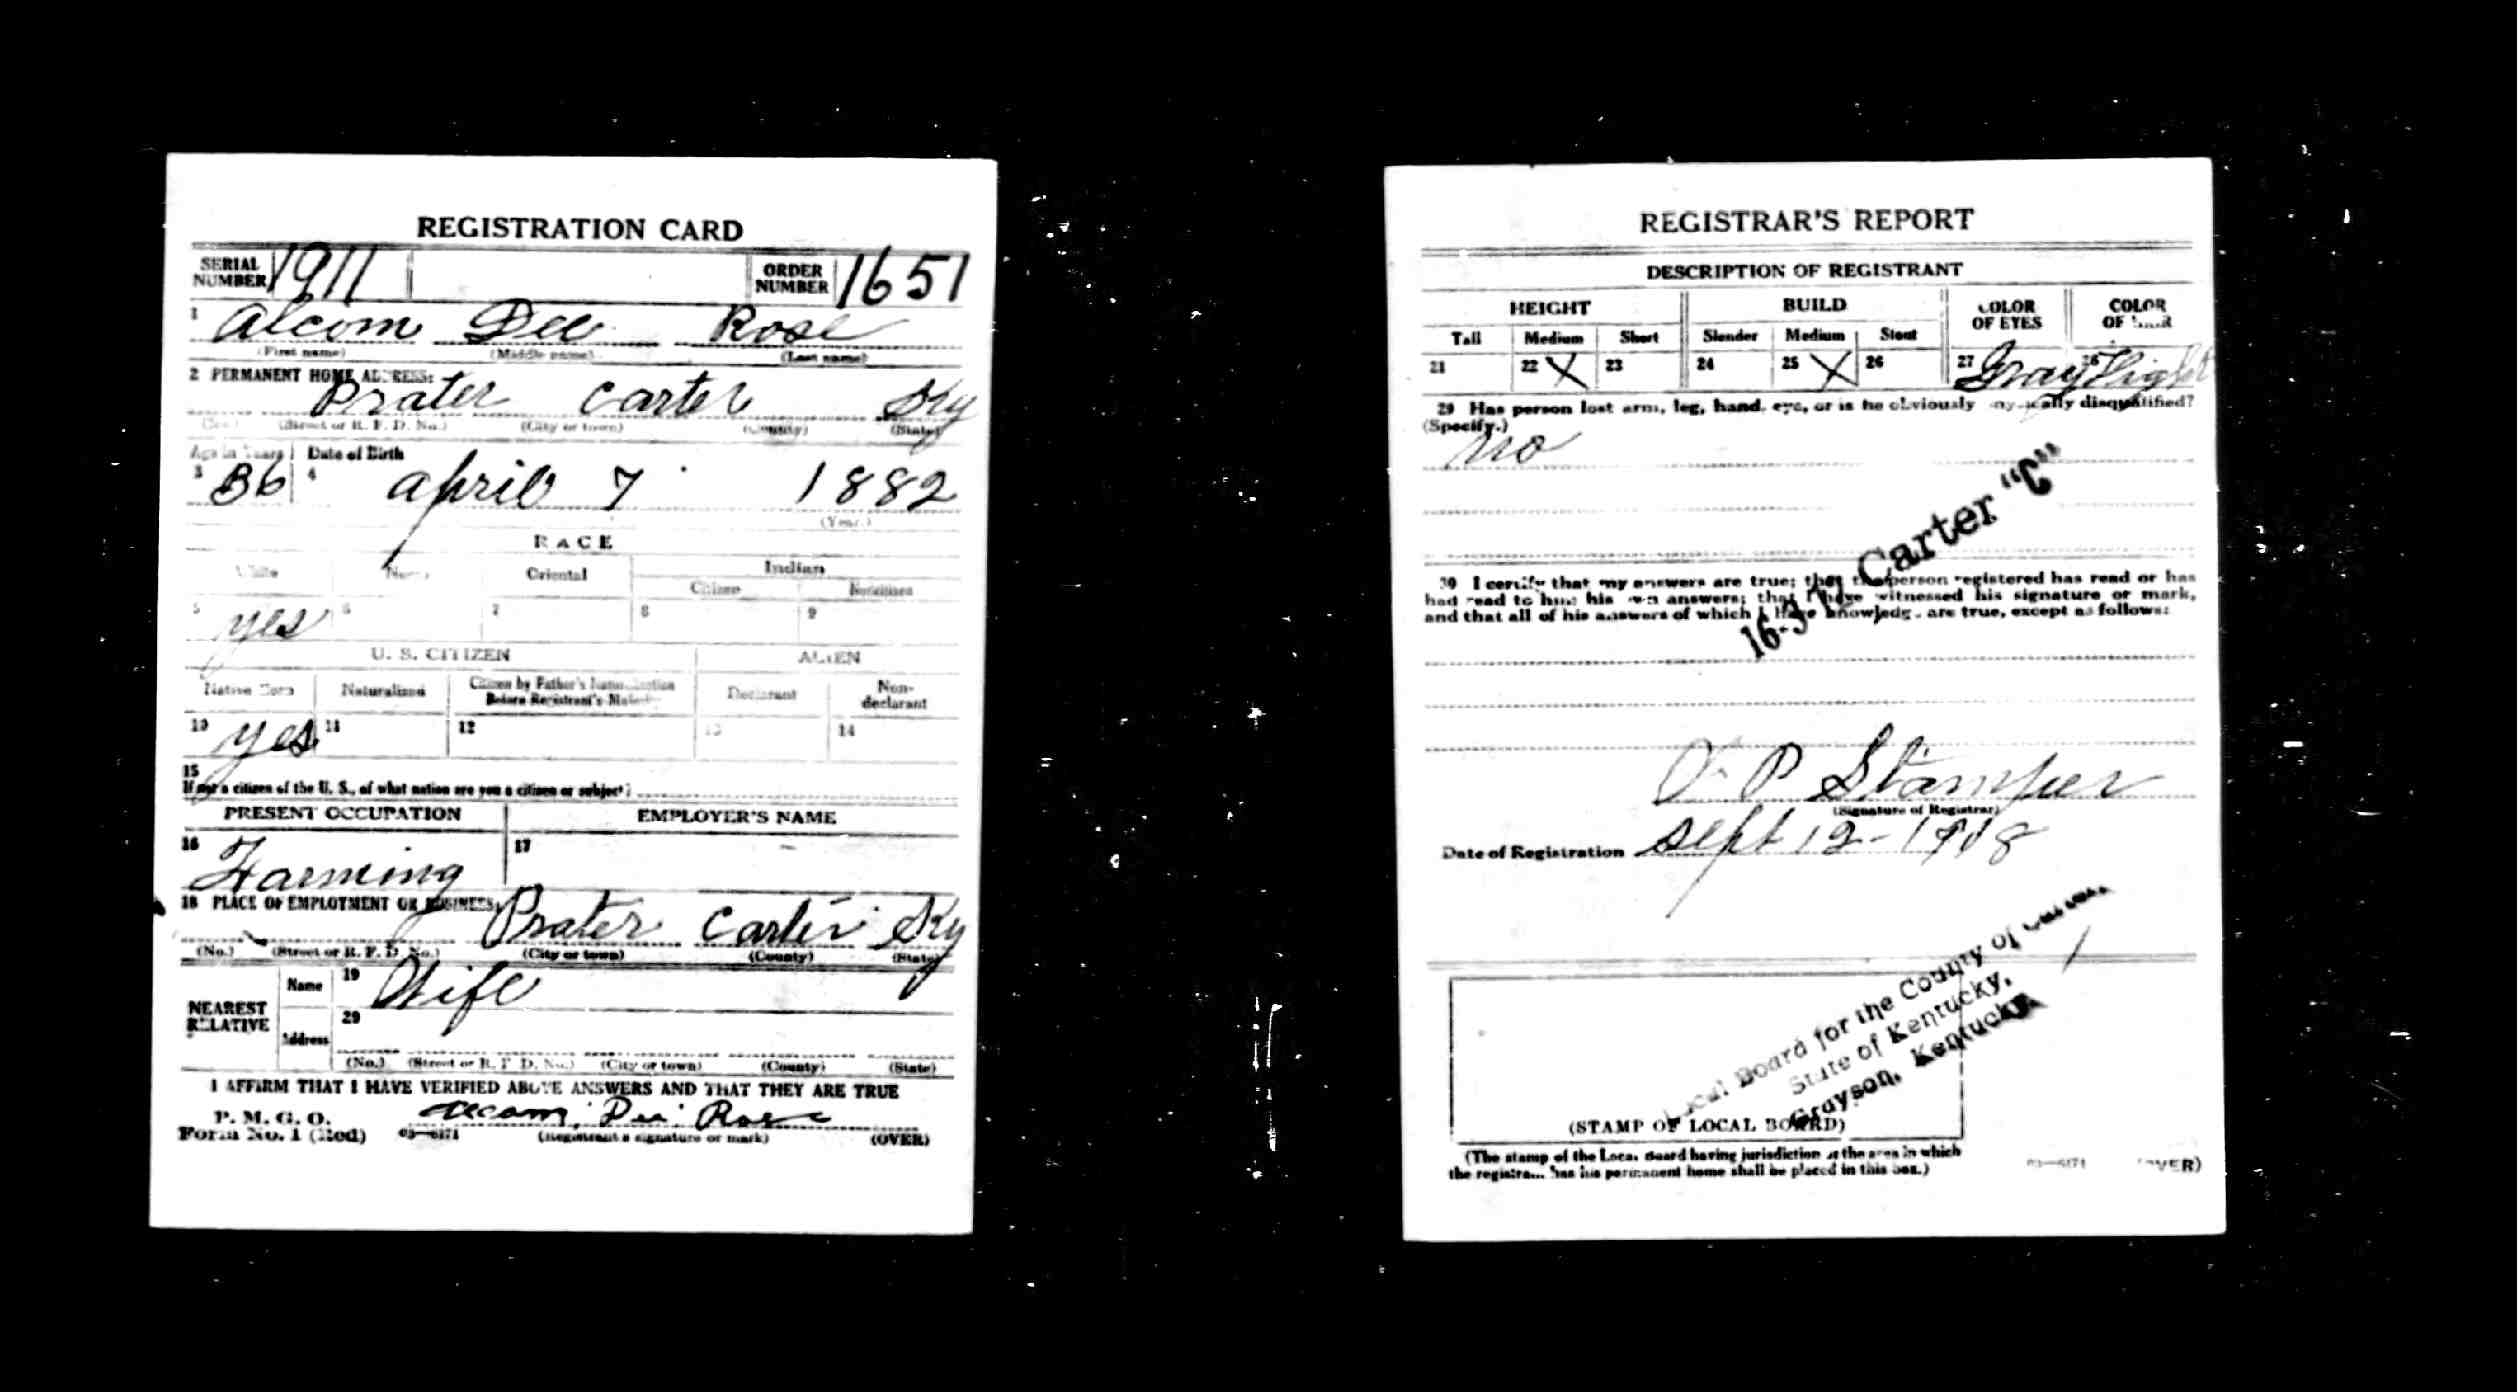 REGISTRATION CARD
SERIAL NUMBER 1911 ORDER NUMBER 1651
1 Alcom Dee Rose
(First name) (Middle name) (Last name)
2 PERMANENT HOME ADDRESS:
Prater Carter Ky
(No.) (Street or R. F. D. No.) (City or town) (County) (State)
Age in Years Date of Birth
3 36 4 April 7 1882
(Year.)
RACE
White Negro Oriental Indian
Citizen Noncitizen
5 yes 6 7 8 9
U. S. CITIZEN ALIEN
Native Born Naturalized Citizen by Father's Naturalization Before Registrant's Majority Declarant Non-declarant
10 yes 11 12 13 14
15
If not a citizen of the U. S., of what nation are you a citizen or subject?
PRESENT OCCUPATION EMPLOYER'S NAME
16 Farming 17 –
18 PLACE OF EMPLOYMENT OR BUSINESS:
Prater Carter Ky
(No.) (Street or R. F. D. No.) (City or town) (County) (State)
NEAREST RELATIVE Name 19 Wife
Address 20
(No.) (Street or R. F. D. No.) (City or town) (County) (State)
I AFFIRM THAT I HAVE VERIFIED ABOVE ANSWERS AND THAT THEY ARE TRUE
P. M. G. O.
Form No. 1 (Red) 03—6171 Alcom Dee Rose
(Registrant's signature or mark) (OVER)
REGISTRAR'S REPORT
DESCRIPTION OF REGISTRANT
HEIGHT BUILD COLOR OF EYES COLOR OF HAIR
Tall Medium Short Slender Medium Stout
21 22 X 23 24 25 X 26 27 Gray 28 Light
29 Has person lost arm, leg, hand, eye, or is he obviously physically disqualified?
(Specify.)
no
16-3-12 Carter "C"
30 I certify that my answers are true; that the person registered has read or has
had read to him his own answers; that I have witnessed his signature or mark,
and that all of his answers of which I have knowledge are true, except as follows:
P Stamper
(Signature of Registrar)
Date of Registration Sept 12-1918
Local Board for the County of Carter,
State of Kentucky,
Grayson, Kentucky
(STAMP OF LOCAL BOARD)
(The stamp of the Local Board having jurisdiction of the area in which
the registrant has his permanent home shall be placed in this box.)
03—6171 (OVER)